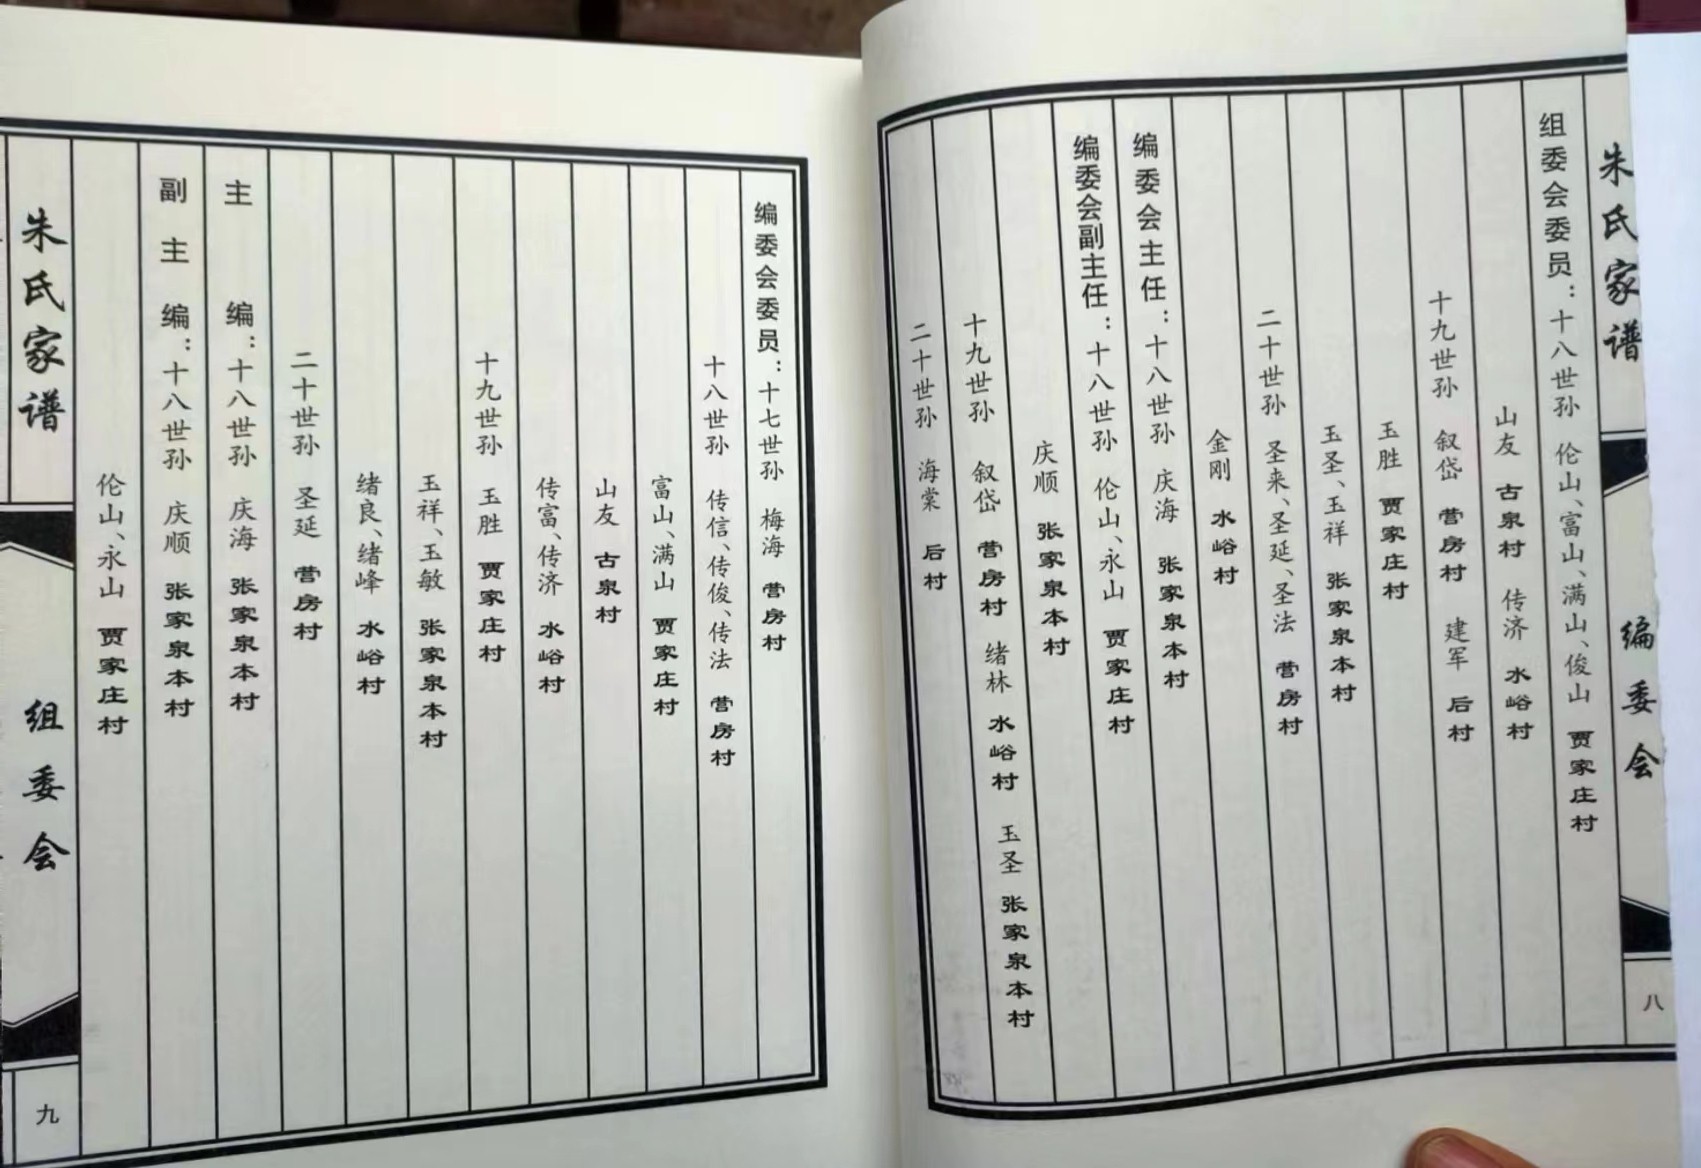 朱氏家谱
编委会
八
组委会委员：十八世孙 伦山、富山、满山、俊山 贾家庄村
山友 古泉村 传济 水峪村
十九世孙 叙岱 营房村 建军 后村
玉胜 贾家庄村
玉圣、玉祥 张家泉本村
二十世孙 圣来、圣延、圣法 营房村
金刚 水峪村
编委会主任：十八世孙 庆海 张家泉本村
编委会副主任：十八世孙 伦山、永山 贾家庄村
庆顺 张家泉本村
十九世孙 叙岱 营房村 绪林 水峪村 玉圣 张家泉本村
二十世孙 海棠 后村
编委会委员：十七世孙 梅海 营房村
十八世孙 传信、传俊、传法 营房村
富山、满山 贾家庄村
山友 古泉村
传富、传济 水峪村
十九世孙 玉胜 贾家庄村
玉祥、玉敏 张家泉本村
绪良、绪峰 水峪村
二十世孙 圣延 营房村
主编：十八世孙 庆海 张家泉本村
副主编：十八世孙 庆顺 张家泉本村
伦山、永山 贾家庄村
朱氏家谱
组委会
九